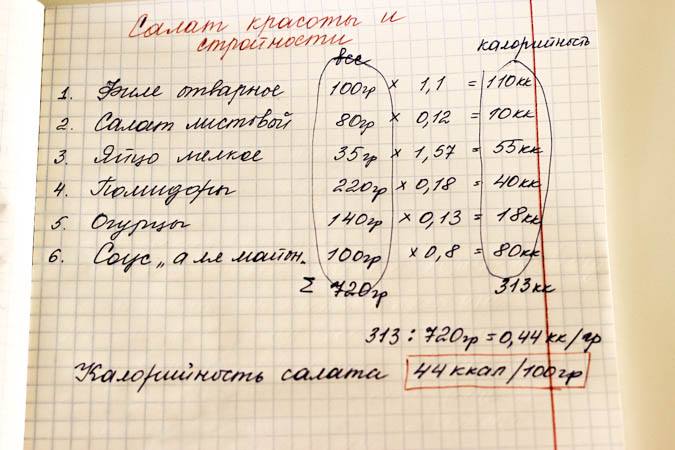 Салат красоты и
стройности
вес калорийность
1. Филе отварное 100гр × 1,1 = 110кк
2. Салат листовый 80гр × 0,12 = 10кк
3. Яйцо мелкое 35гр × 1,57 = 55кк
4. Помидоры 220гр × 0,18 = 40кк
5. Огурцы 140гр × 0,13 = 18кк
6. Соус „а ля майон. 100гр × 0,8 = 80кк
Σ 720гр 313кк
313 : 720гр = 0,44кк/гр
Калорийность салата 44ккал/100гр